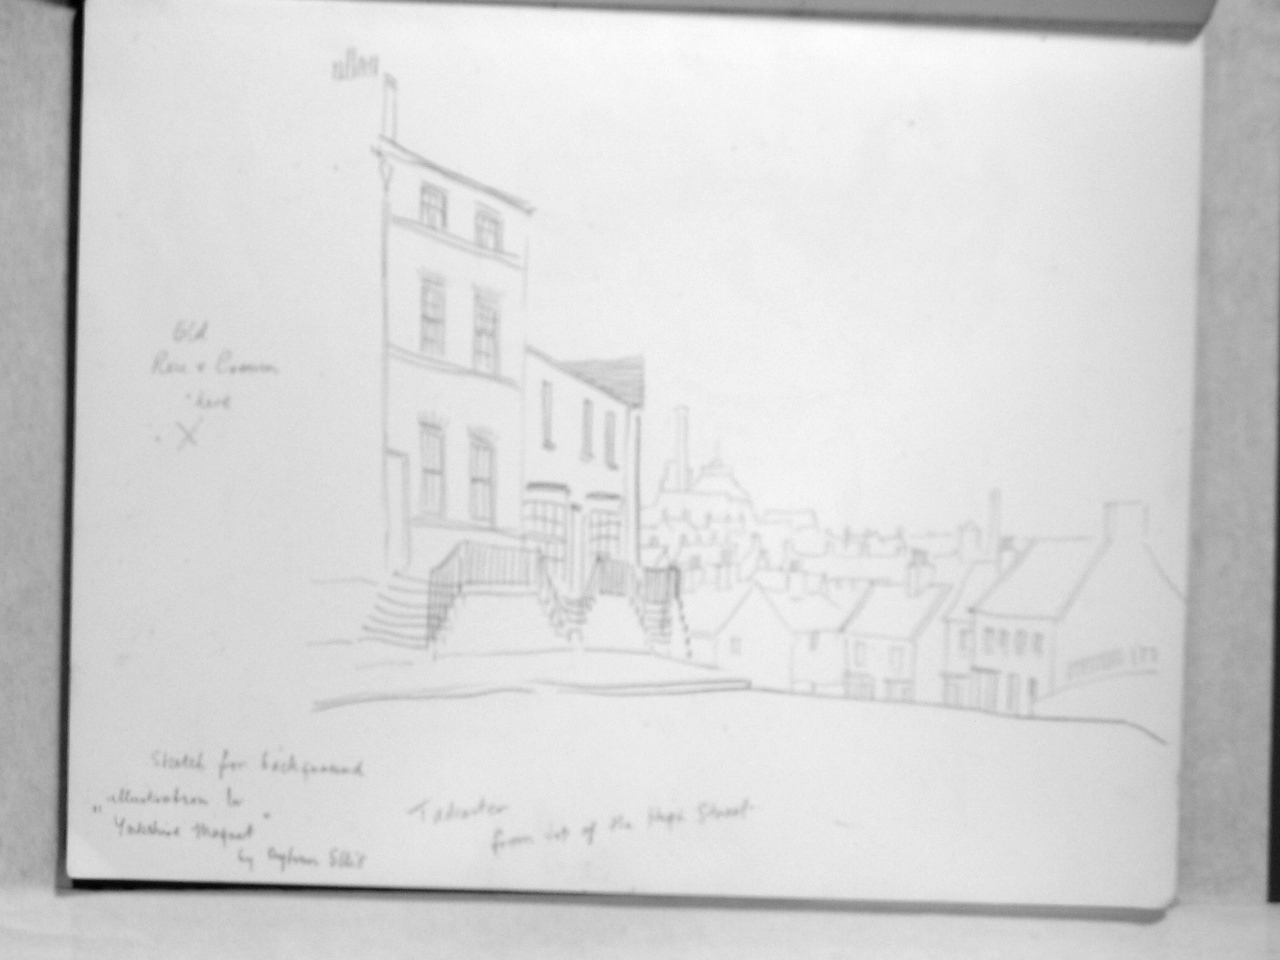 Old
Rose & Crown
here
X
Sketch for background
illustration to
"Yorkshire
by Ellis
Tadcaster
from top of the High Street